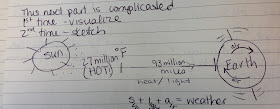 This next part is complicated
1st time - visualize
2nd time - sketch
Sun
27 million °F
(HOT!)
93 million
miles
heat/light
air
Earth
air
= weather